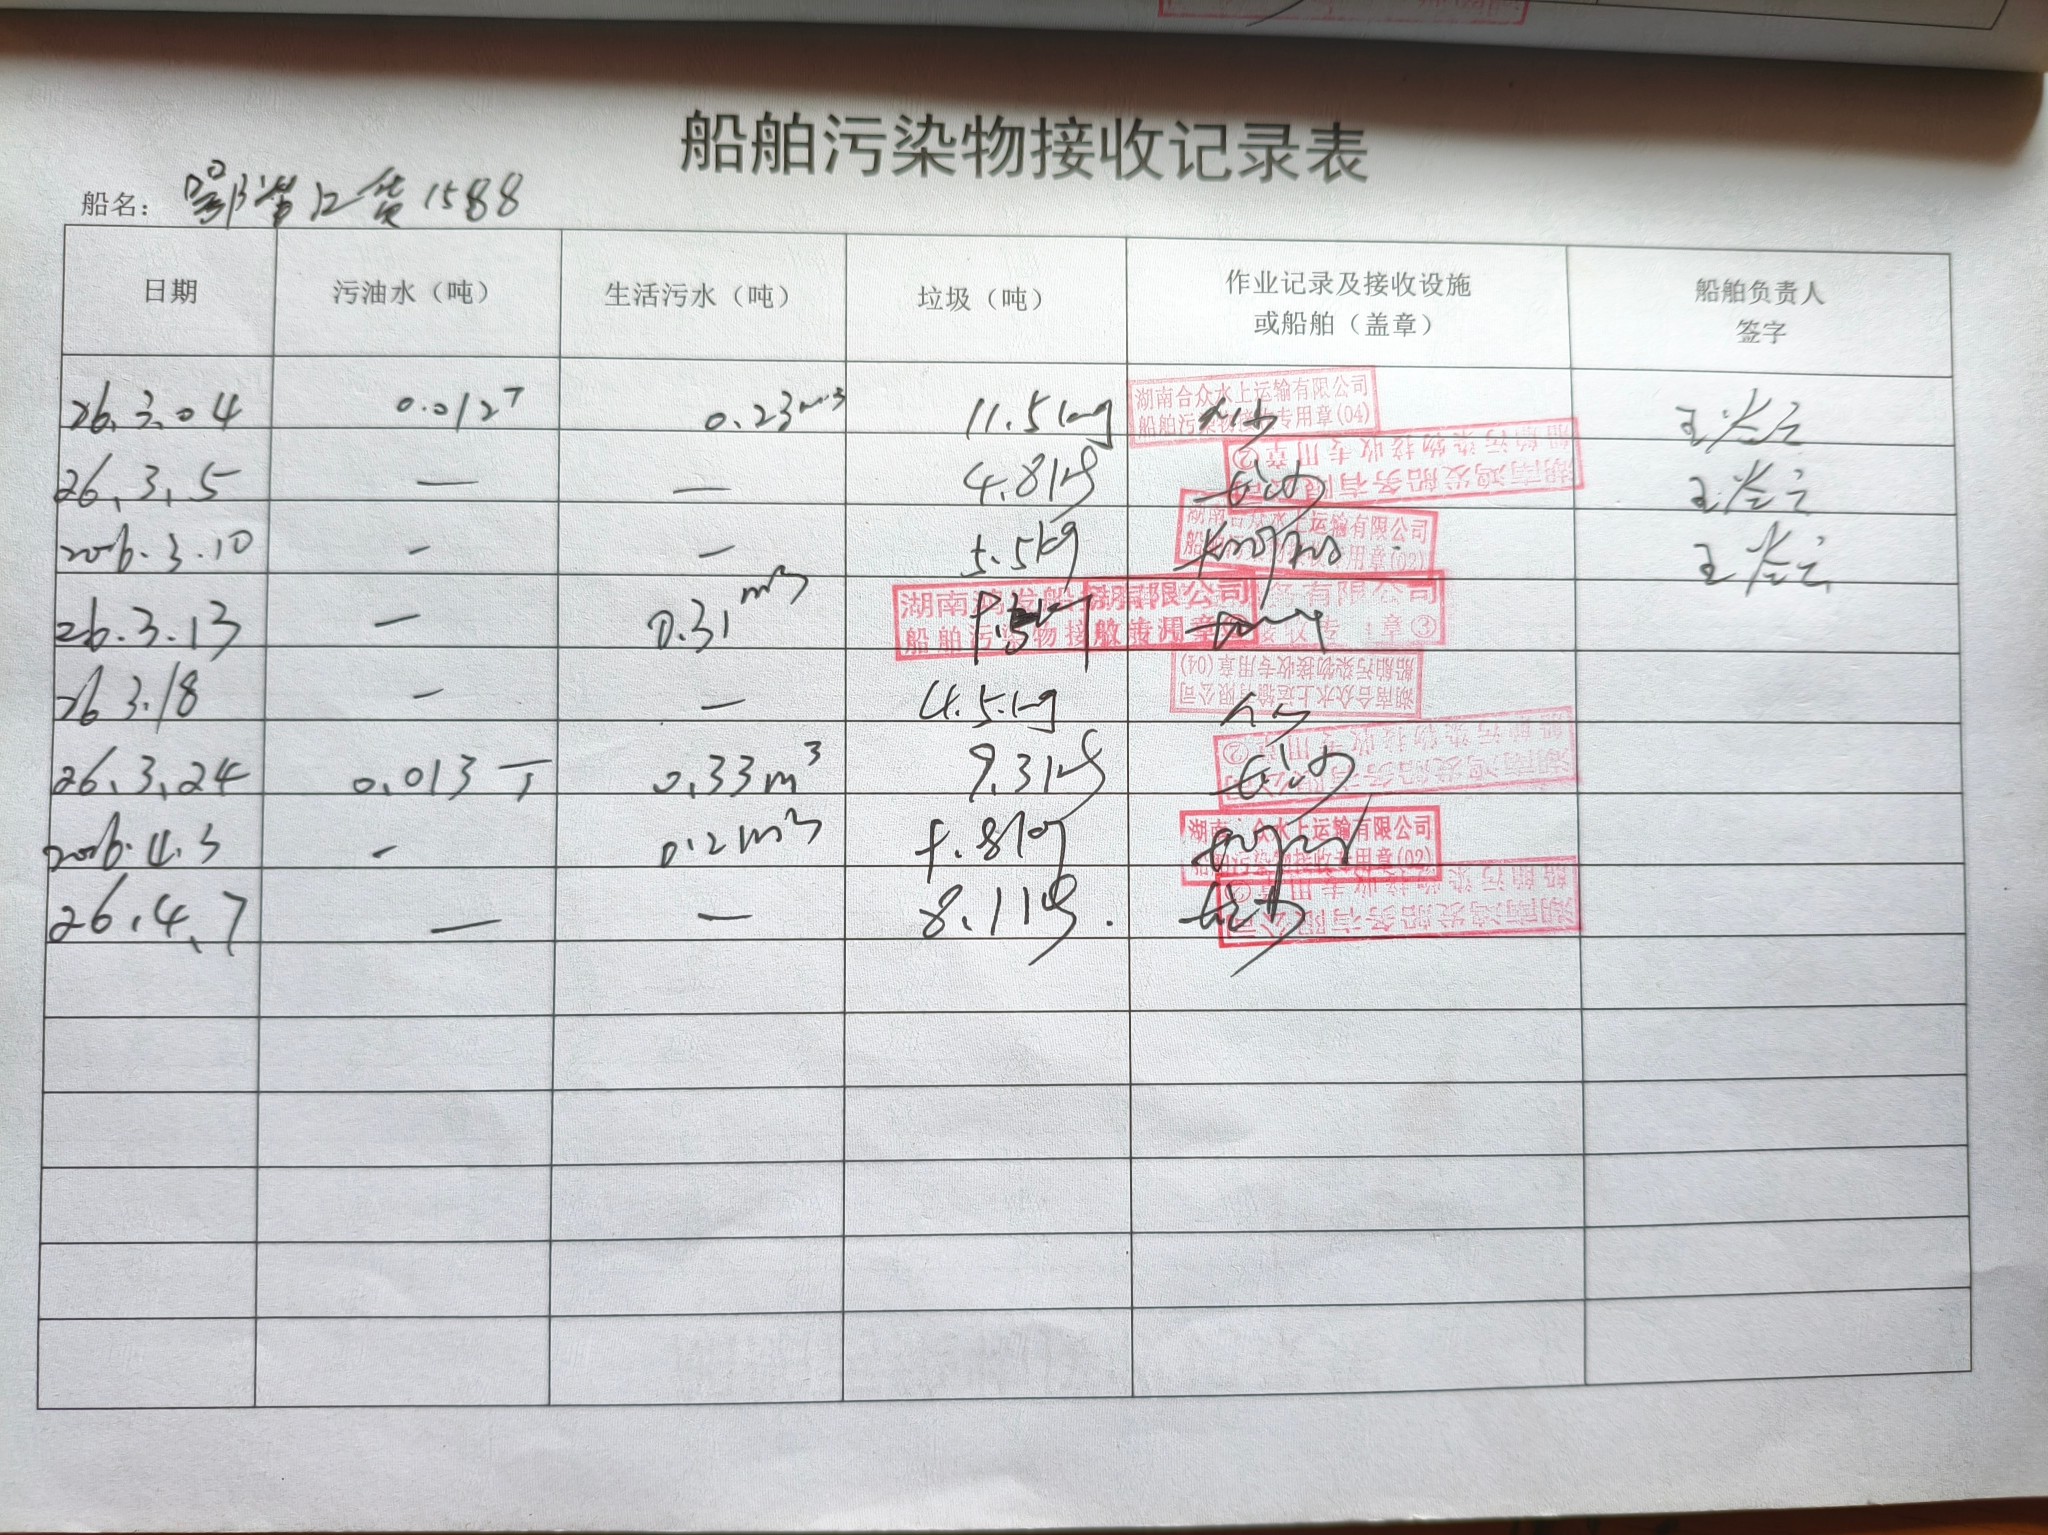 船舶污染物接收记录表
船名： 鄂潜江货1588
日期 污油水（吨） 生活污水（吨） 垃圾（吨） 作业记录及接收设施 船舶负责人
或船舶（盖章） 签字
26.3.04 0.012T 0.23m3 11.5kg
湖南合众水上运输有限公司
船舶污染物接收专用章(04)
26.3.5 — — 4.8kg 长沙
湖南鸿发船务有限公司
船舶污染物接收专用章②
2026.3.10 — — 5.5kg
湖南合众水上运输有限公司
26.3.13 — 0.31m3
湖南鸿发船务有限公司
船舶污染物接收专用章③
26.3.18 — — 4.5kg 长沙
湖南合众水上运输有限公司
船舶污染物接收专用章(04)
26.3.24 0.013T 0.33m3 9.3kg 长沙
湖南鸿发船务有限公司
船舶污染物接收专用章②
2026.4.3 — 0.21m3
湖南合众水上运输有限公司
船舶污染物接收专用章(02)
26.4.7 — — 8.1kg. 长沙
湖南鸿发船务有限公司
船舶污染物接收专用章